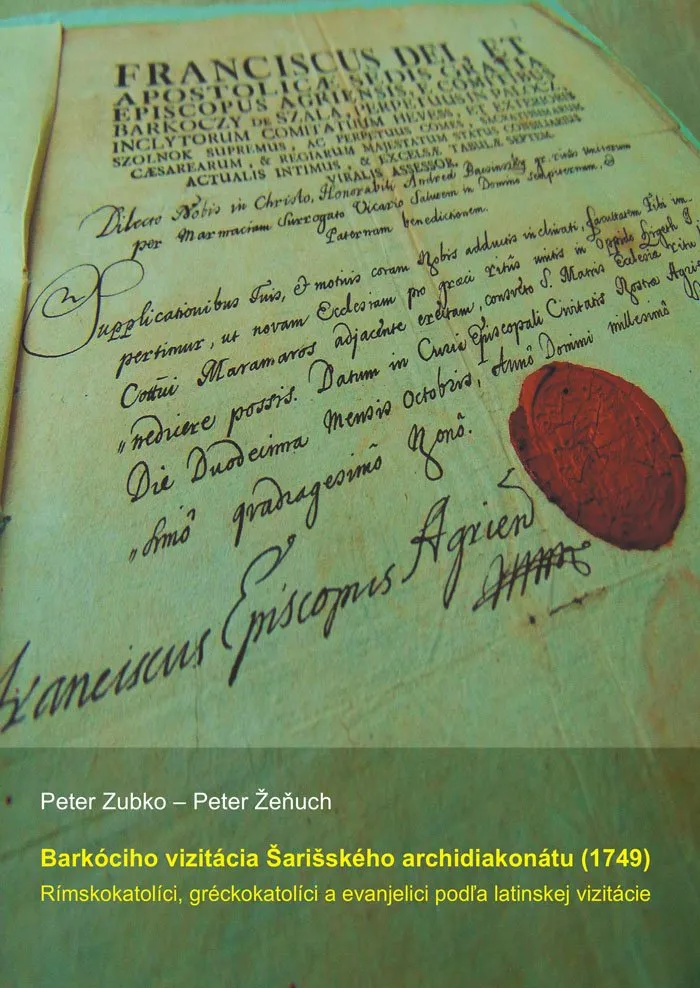 FRANCISCUS DEI, ET
APOSTOLICÆ SEDIS GRATIA
EPISCOPUS AGRIENSIS, E COMITIBUS
BARKOCZY DE SZALA, PERPETUUS IN PALOCZ,
INCLYTORUM COMITATUUM HEVESS, ET EXTERIORIS
SZOLNOK SUPREMUS, AC PERPETUUS COMES, SACRATISSIMARUM
CÆSAREARUM, & REGIARUM MAJESTATUM STATUS CONSILIARIUS
ACTUALIS INTIMUS, & EXCELSÆ TABULÆ SEPTEM-
VIRALIS ASSESSOR.
Dilecto Nobis in Christo, Honorabili Andreæ Bacsinszky gr. ritus Unitorum
per Marmaciam Surrogato Vicario Salutem in Domino sempiternam, &
Paternam benedictionem.
Supplicationibus Tuis, & motivis coram Nobis adductis inclinati, facultatem Tibi im-
pertimur, ut novam Ecclesiam pro græci ritûs unitis in Oppido
Cottui Maramaros adjacente erectam, consveto S. Matris Ecclesiæ ritu
nedicere possis. Datum in Curia Episcopali Civitatis Nostræ Agri
Die Duodecima Mensis Octobris, Anno Domini millesimô
simô quadragesimô Nonô.
Franciscus Episcopus Agrien
Peter Zubko – Peter Žeňuch
Barkóciho vizitácia Šarišského archidiakonátu (1749)
Rímskokatolíci, gréckokatolíci a evanjelici podľa latinskej vizitácie